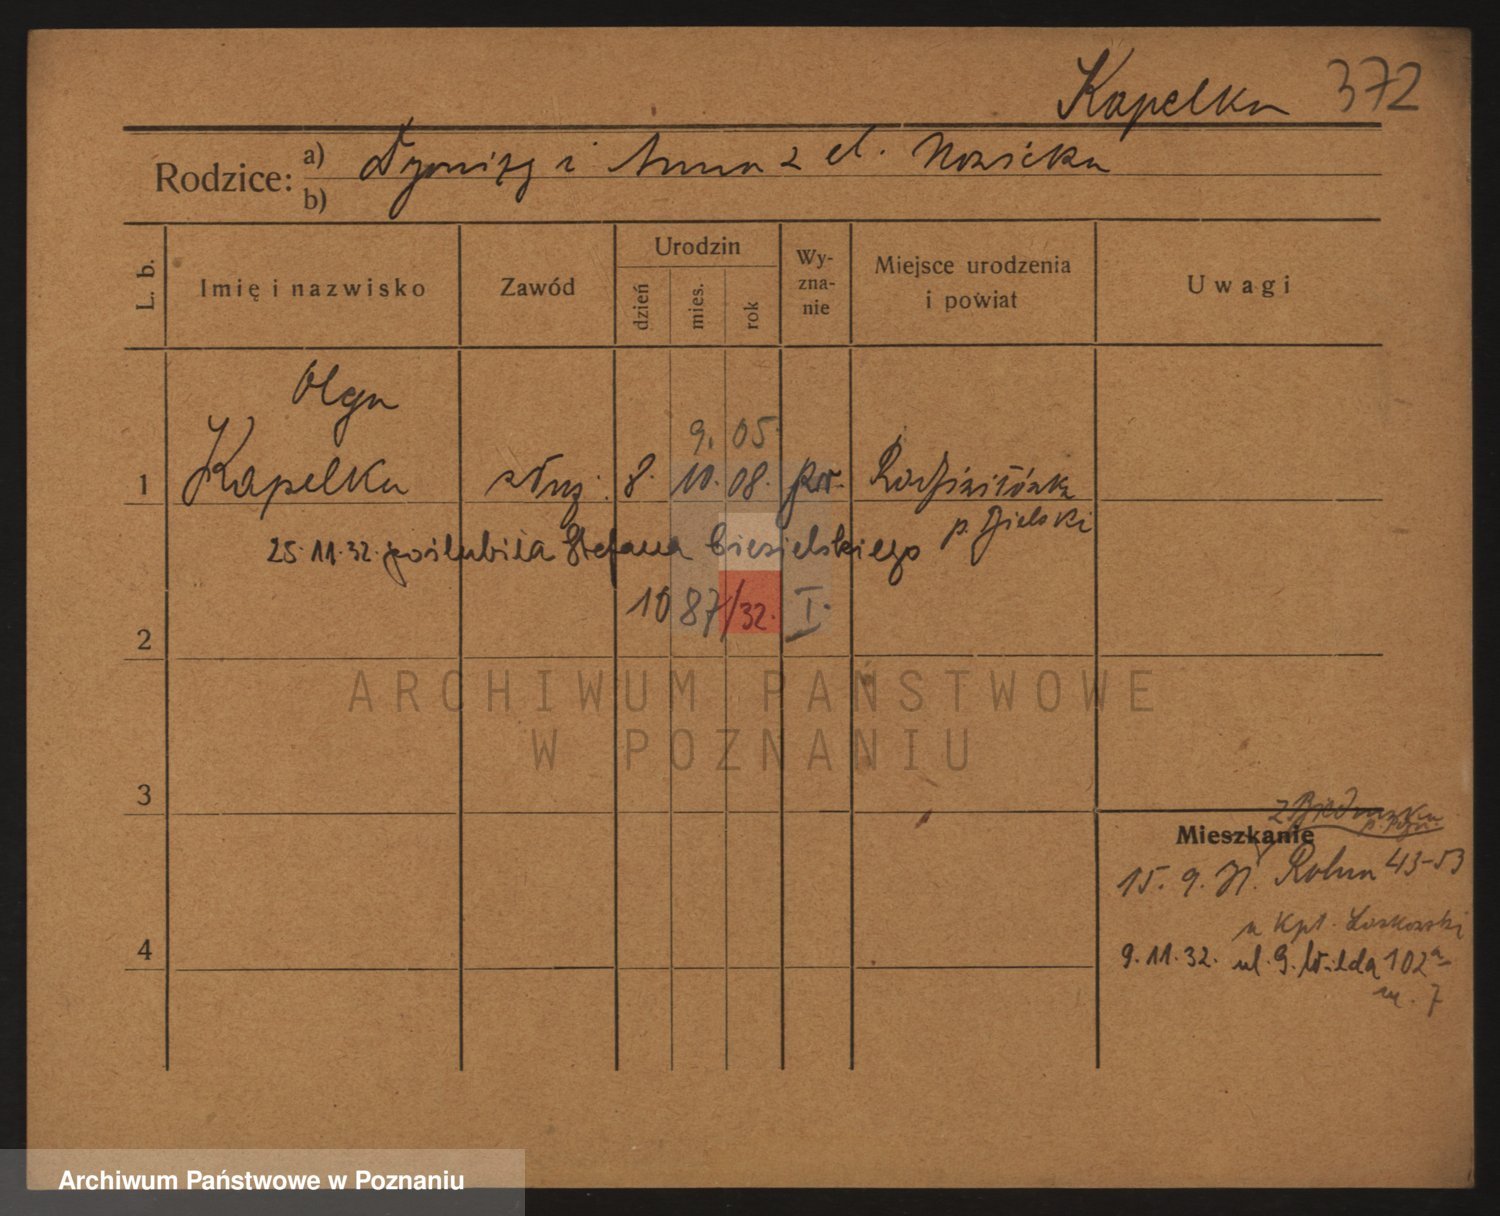 Kapelka 372
Rodzice: a) Dyonizy i Anna z d. Nozicka
b)
L. b. Imię i nazwisko Zawód Urodzin dzień mies. rok Wyznanie Miejsce urodzenia i powiat Uwagi
Olga
9. 05.
1 Kapelka służ. 8. 10. 08. pr.
p. Bielski
25.11.32. poślubiła Stefana Ciesielskiego
1087/32. I.
2
ARCHIWUM PAŃSTWOWE
W POZNANIU
3
Mieszkanie
15. 9. 43-53
u Kpt. Laskowski
4 9.11.32. ul. G. Wilda 102a
m. 7
Archiwum Państwowe w Poznaniu